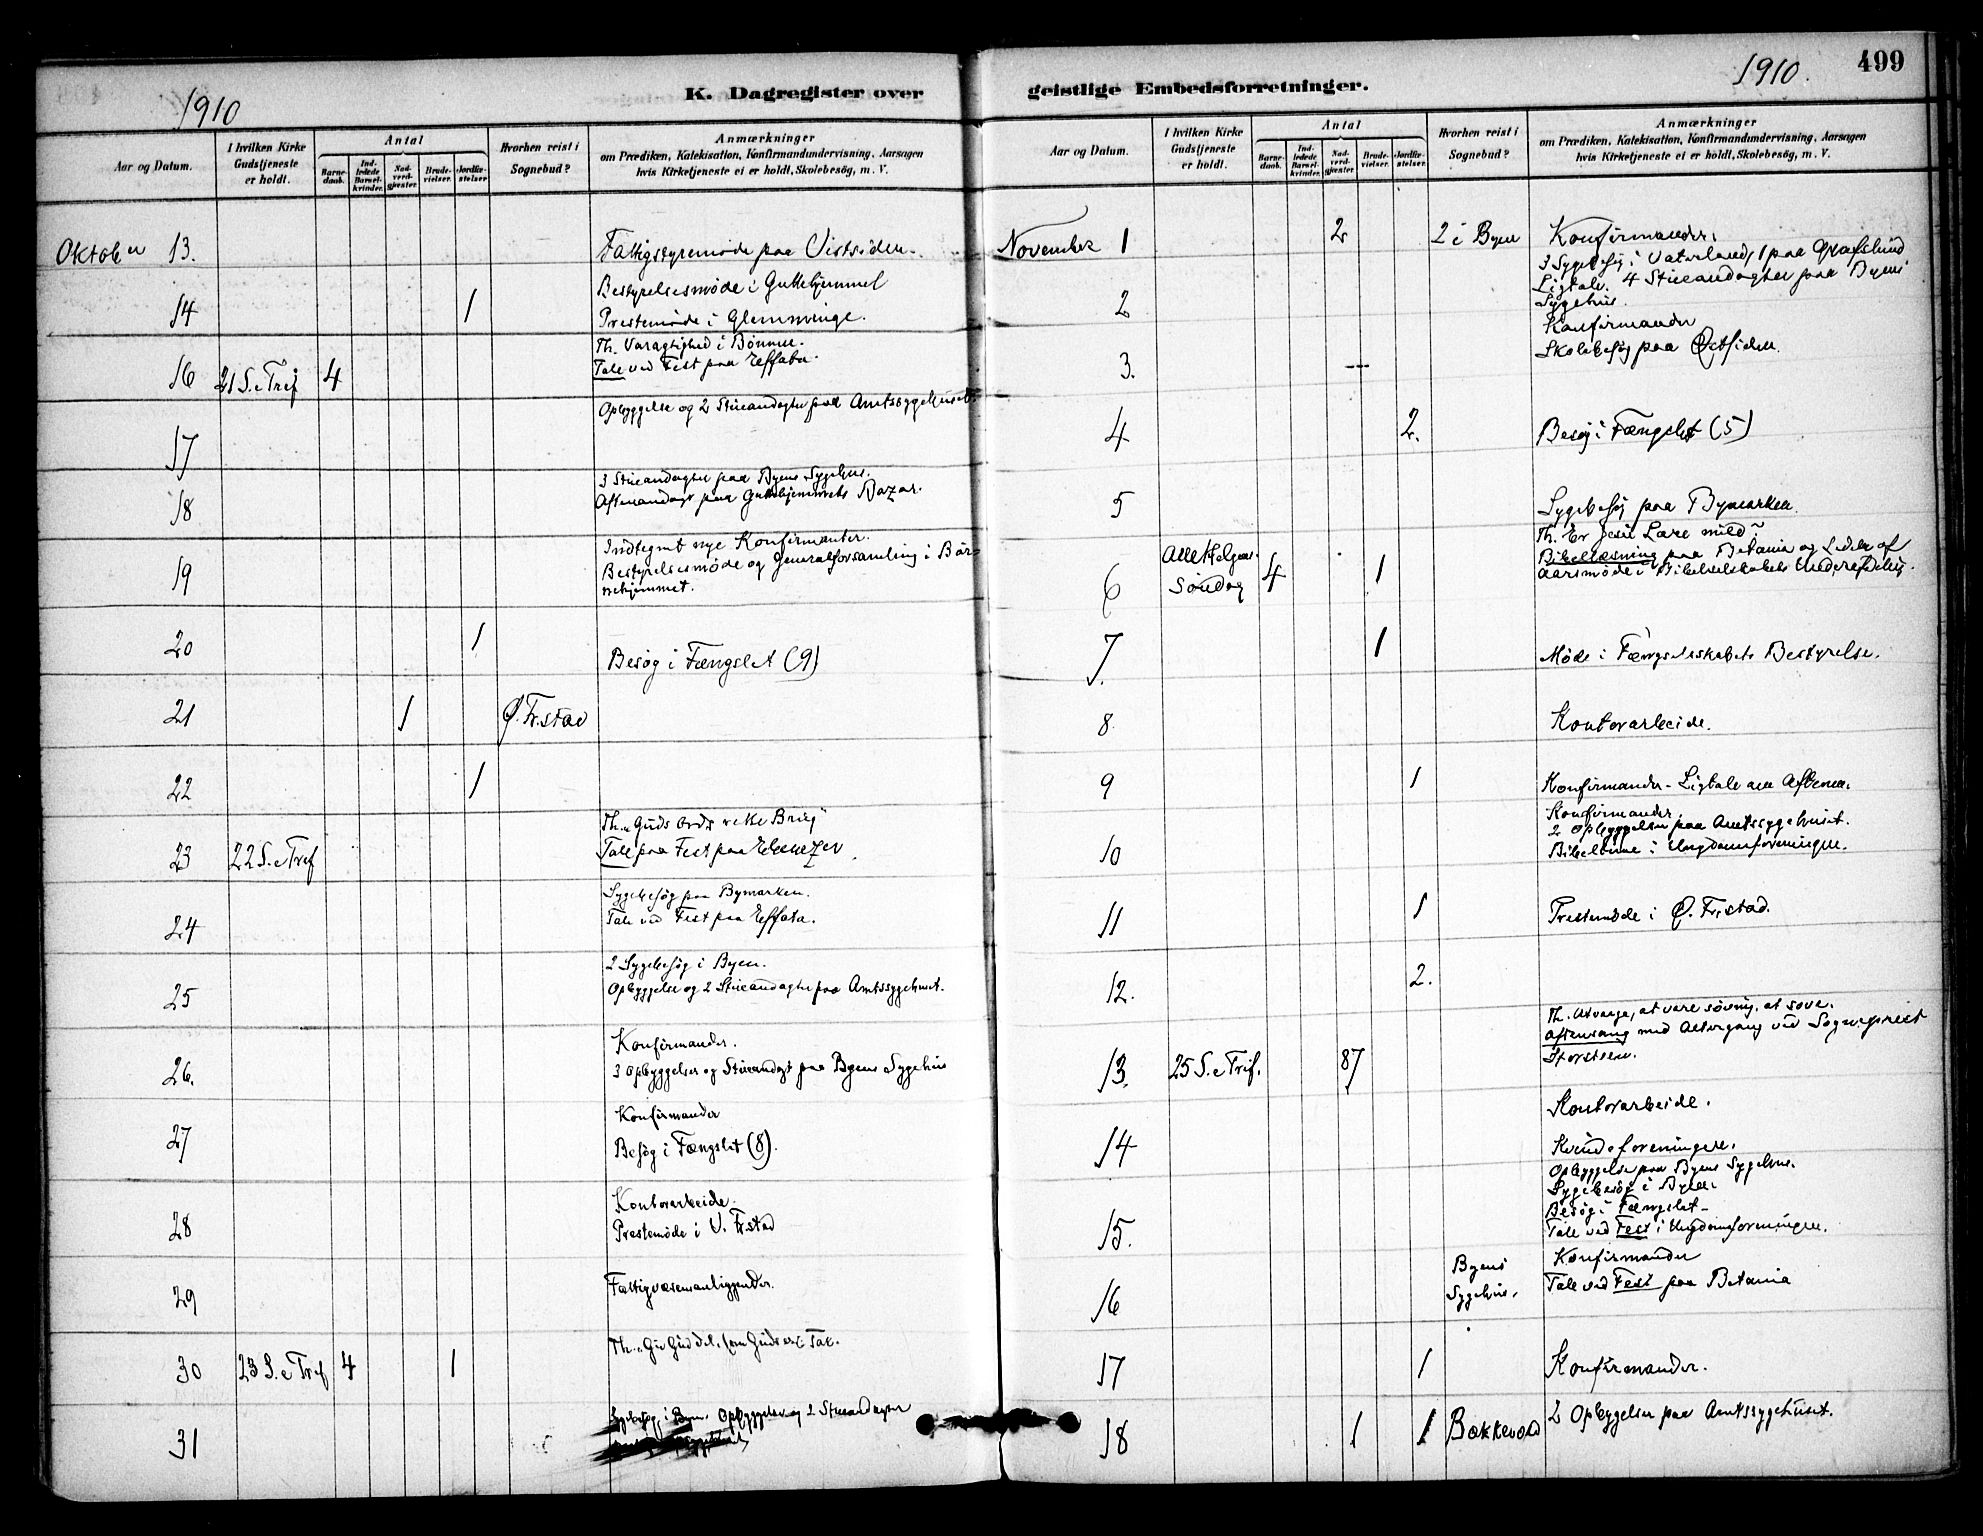 1910
K. Dagregister over
Aar og Datum.
I hvilken Kirke Gudstjeneste er holdt.
Antal
Barnedaab.
Indledede Barselkvinder.
Nadverdgjæster.
Brudevielser.
Jordfæstelser.
Hvorhen reist i Sognebud?
Anmærkninger
om Prædiken, Katekisation, Konfirmandundervisning, Aarsagen
hvis Kirketjeneste ei er holdt, Skolebesög, m. V.
Oktober 13. Fattigstyremøde paa Vestsiden.
Bestyrelsesmøde i Guttehjemmet
14 1 Prestemøde i Glemminge.
Th. Varagtighed i Bønnen.
16 21 S. e Tref 4 Tale ved Fest paa Effata.
Opbyggelse og 2 Stueandagter paa Amtssygehuset.
17
3 Stueandagter paa Byens Sygehus.
18 Aftenandagt paa Guttehjemmets Bazar.
Indtegnet nye Konfirmanter.
19 Bestyrelsesmøde og Generalforsamling i Bör-
nehjemmet.
20 1 Besøg i Fængslet (9)
21 1 Ø. Fr.stad
22 1
Th. "Guds Ords rette Brug"
23 22 S. e Tref Tale paa Fest paa Ebenezer.
Sygebesøg paa Bymarken.
24 Tale ved Fest paa Effata.
2 Sygebesøg i Byen.
25 Opbyggelse og 2 Stueandagter paa Amtssygehuset.
Konfirmander.
26. 3 Opbyggelser og Stueandagt paa Byens Sygehus
Konfirmander
27 Besøg i Fængslet (8).
Kontorarbeide.
28 Prestemøde i V. Fr.stad
29 Fattigvæsenanliggender.
30 23 S. e Tref 4 1 Th. "Giv Gud det, som Guds er" Tale.
Sygebesøg i Byen. Opbyggelse og 2 Stueandagter
31
1910. 499
geistlige Embedsforretninger.
Aar og Datum.
I hvilken Kirke Gudstjeneste er holdt.
Antal
Barnedaab.
Indledede Barselkvinder.
Nadverdgjæster.
Brudevielser.
Jordfæstelser.
Hvorhen reist i Sognebud?
Anmærkninger
om Prædiken, Katekisation, Konfirmandundervisning, Aarsagen
hvis Kirketjeneste ei er holdt, Skolebesög, m. V.
November 1 2 2 i Byen Konfirmander.
3 Sygebesøg i Vaterland, 1 paa Græslund
Ligtale. 4 Stueandagter paa Byens
2 Sygehus.
Konfirmander
3. Skolebesøg paa Østsiden.
4 2. Besøg i Fængslet (5)
5 Sygebesøg paa Bymarken.
Th. Er Jesu Lære mild?
6 Alle Helgens Søndag 4 1 Bibellæsning paa Betania og Leder af
Aarsmøde i Bibelselskabets Underafdeling.
7. 1 Møde i Fængselsskabets Bestyrelse.
8. Kontorarbeide.
9 1 Konfirmander - Ligtale om Aftenen.
Konfirmander
2 Opbyggelser paa Amtssygehuset.
10 Bibeltime i Ungdomsforeningen.
11 1 Prestemøde i Ø. Fr.stad.
12. 2.
Th. At vaage, at være søvnig, at sove.
Aftensang med Altergang ved Sogneprest
13. 25 S. e Tref. 87 Storsteen.
Kontorarbeide.
14 Kvindeforeningen.
Opbyggelse paa Byens Sygehus.
Sygebesøg i Byen.
Besøg i Fængslet -
15. Tale ved Fest i Ungdomsforeningen.
16 Byens Sygehus. Konfirmander
Tale ved Fest paa Betania
17 1 Konfirmander.
18 1 1 Bakkevold 2 Opbyggelser paa Amtssygehuset.